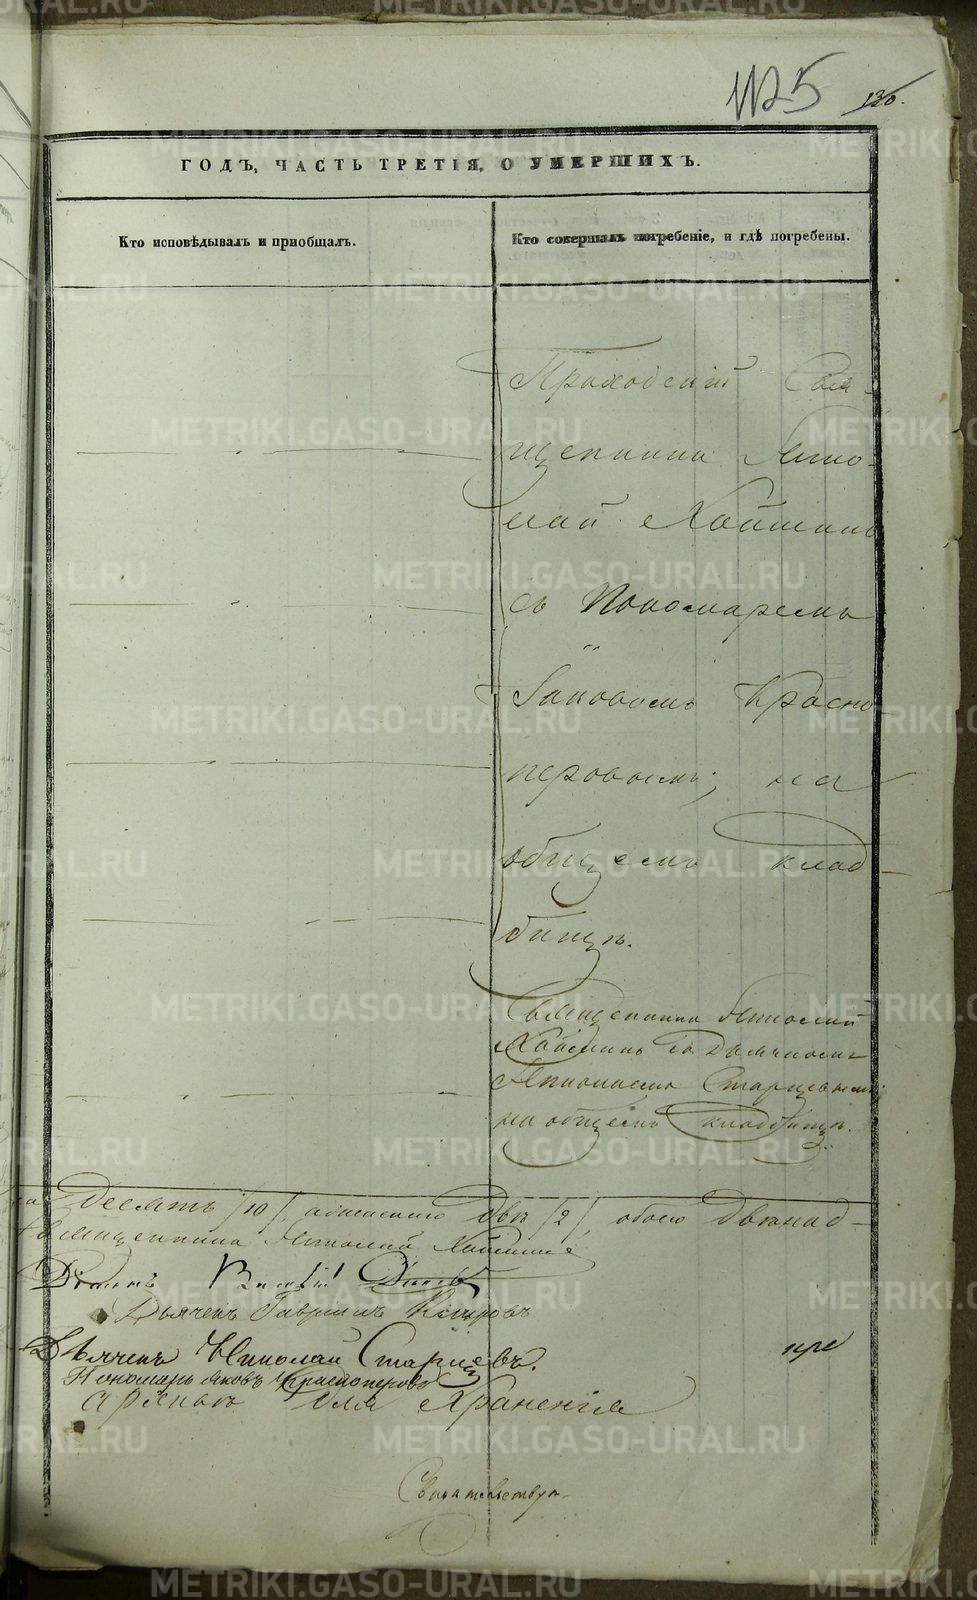 1125 130.
ГОДЪ, ЧАСТЬ ТРЕТІЯ, О УМЕРШИХЪ.
Кто исповѣдывалъ и пріобщалъ.
Кто совершалъ погребеніе, и гдѣ погребены.
Приходскій Свя-
щенникъ Нико-
лай
съ Пономаремъ
Іаковомъ Красно
перовымъ; на
общемъ клад
бищѣ.
Священникъ Николай
съ Дьячкомъ
Николаемъ Старцевымъ
на общемъ кладбищѣ.
десять /10/, женскаго двѣ /2/, обоего двѣнад-
Священникъ Николай
Дьячекъ Гавриилъ
Дьячекъ Николай Старцевъ.
при
Пономарь Яковъ Красноперовъ
для храненія
Свидѣтельствую
METRIKI.GASO-URAL.RU